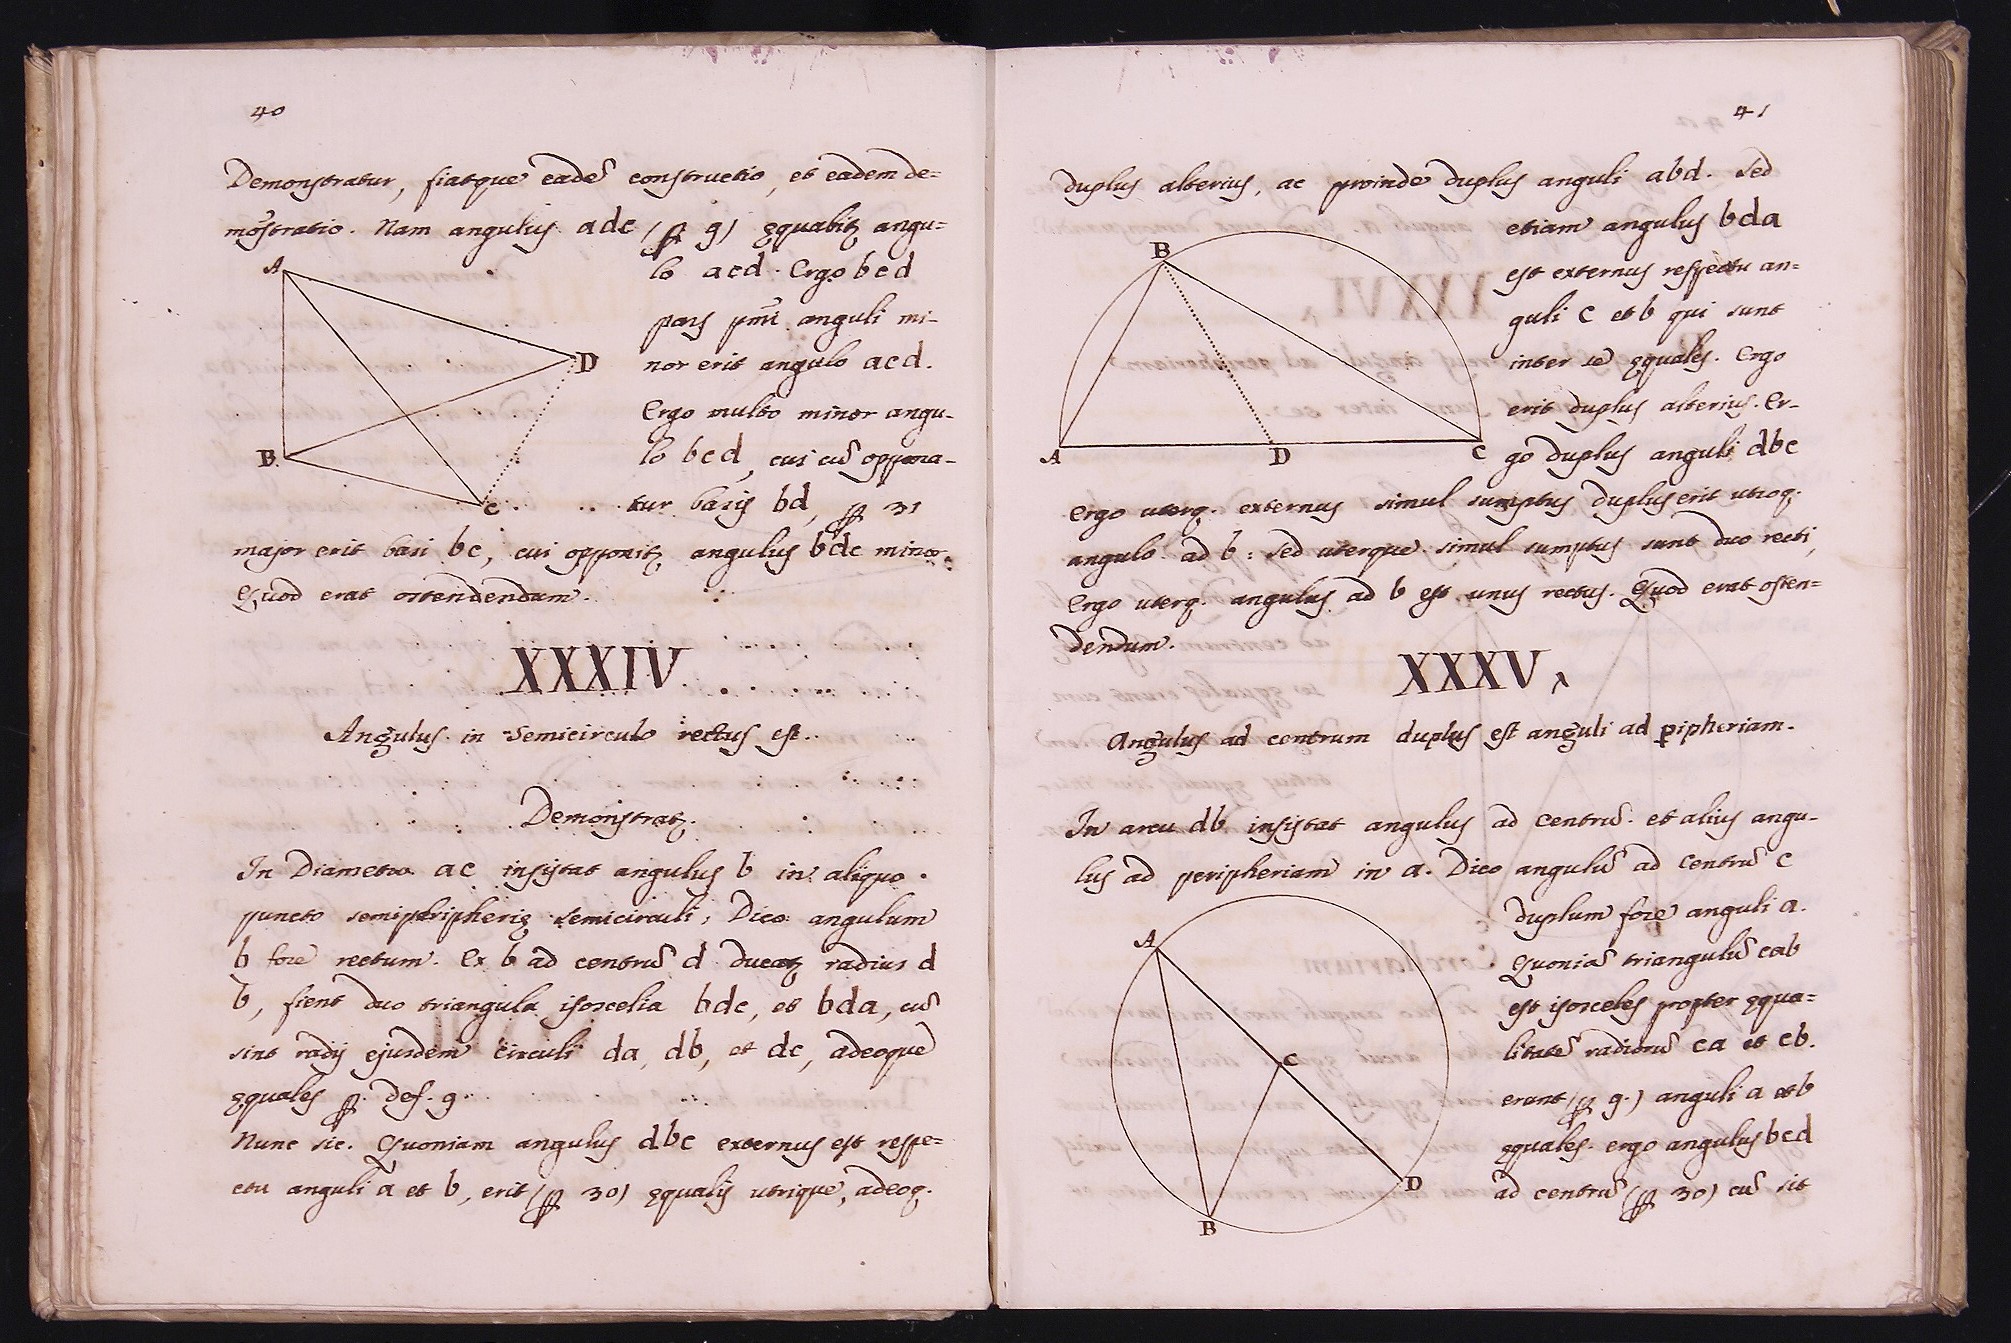 40
Demonstratur, fiatque eadē constructio, et eadem de=
mōstratio. Nam angulus adc (per 9) ęquabitz angu=
lo acd. Ergo bcd
pars pmi anguli mi-
nor erit angulo acd.
Ergo multo minor angu-
lo bcd, cui cū oppona-
tur basis bd, per 31
major erit basi bc, cui opponitz angulus bdc minor.
Quod erat ostendendum.
A
D
B
C
XXXIV
Angulus in Semicirculo rectus est.
Demonstratz.
In Diametro ac insistat angulus b in aliquo
puncto semiperipherię semicirculi, Dico angulum
b fore rectum. Ex b ad centrū d ducatz radius d
b, fient duo triangula isoscelia bdc, et bda, cū
sint radij ejusdem circuli da, db, et dc, adeoque
ęquales per def. 9.
Nunc sic. Quoniam angulus dbc externus est respe=
ctu anguli a et b, erit (per 30) ęqualis utrique, adeoq.
41
duplus alterius, ac proinde duplus anguli abd. Sed
etiam angulus bda
est externus respectu an=
guli c et b qui sunt
inter se ęquales. Ergo
erit duplus alterius. Er-
go duplus anguli dbc
Ergo uterq. externus simul sumptus duplus erit utroq.
angulo ad b: sed uterque simul sumptus sunt duo recti,
Ergo uterq. angulus ad b est unus rectus. Quod erat osten=
dendum.
B
A
D
C
XXXV
Angulus ad centrum duplus est anguli ad pipheriam.
In arcu db insistat angulus ad centrū. et alius angu-
lus ad peripheriam in a. Dico angulū ad centrū c
duplum fore anguli a.
Quoniā triangulū cab
est isosceles propter ęqua=
litatē radiorū ca et cb.
erunt (per 9.) anguli a et b
ęquales. ergo angulus bcd
ad centrū (per 30) cū sit
A
C
D
B